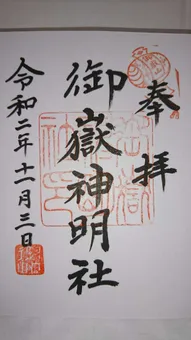 奉拝
御嶽神明社
令和二年十一月三日